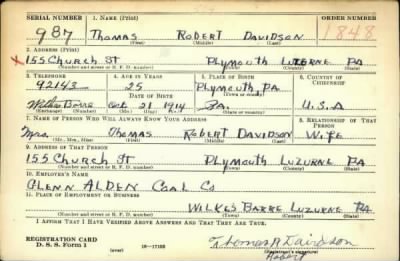 SERIAL NUMBER 1. NAME (Print) ORDER NUMBER
987 Thomas Robert Davidson 1848
(First) (Middle) (Last)
2. ADDRESS (Print)
X 155 Church St Plymouth Luzerne Pa
(Number and street or R. F. D. number) (Town) (County) (State)
3. TELEPHONE 4. AGE IN YEARS 5. PLACE OF BIRTH 6. COUNTRY OF CITIZENSHIP
92143 25 Plymouth, Pa
DATE OF BIRTH (Town or county)
Wilkes Barre Oct 21 1914 Pa. U.S.A
(Exchange) (Number) (Mo.) (Day) (Yr.) (State or country)
7. NAME OF PERSON WHO WILL ALWAYS KNOW YOUR ADDRESS 8. RELATIONSHIP OF THAT PERSON
Mrs. Thomas Robert Davidson Wife
(Mr., Mrs., Miss) (First) (Middle) (Last)
9. ADDRESS OF THAT PERSON
155 Church St Plymouth Luzurne Pa
(Number and street or R. F. D. number) (Town) (County) (State)
10. EMPLOYER'S NAME
Glenn Alden Coal Co
11. PLACE OF EMPLOYMENT OR BUSINESS
Wilkes Barre Luzurne Pa.
(Number and street or R. F. D. number) (Town) (County) (State)
I AFFIRM THAT I HAVE VERIFIED ABOVE ANSWERS AND THAT THEY ARE TRUE.
REGISTRATION CARD
D. S. S. Form 1 (over) 16—17105
Thomas R Davidson
(Registrant's signature)
Robert